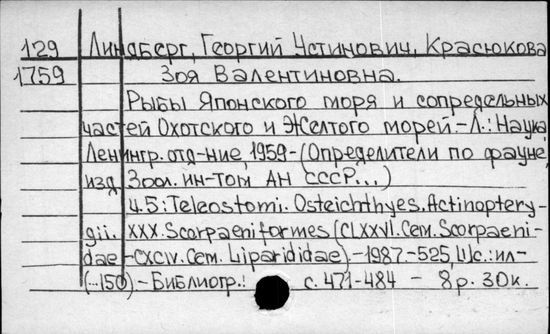 129 Линдберг, Георгий Устинович, Красюкова
1759 Зоя Валентиновна.
Рыбы Японского моря и сопредельных
частей Охотского и Желтого морей-Л.: Наука
Ленингр. отд-ние, 1959-(Определители по фауне,
изд. Зоол. ин-том АН СССР...)
Ч.5: Teleostomi. Osteichthyes. Actinoptery-
gii. XXX. Scorpaeniformes (CLXXVI. Сем. Scorpaeni-
dae-CXCIV. Сем. Liparididae)-1987-525, Цс.: ил-
(...150)-Библиогр.: с. 471-484 - 8р. 30к.